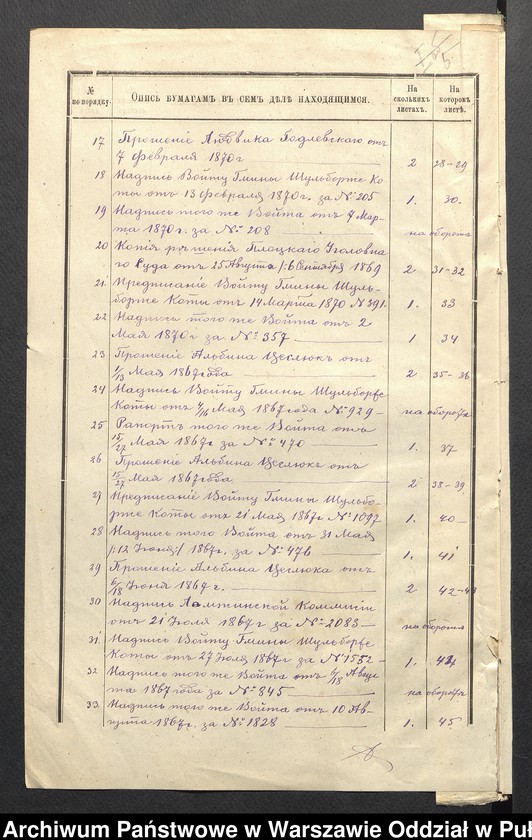 №
по порядку.
Опись бумагамъ въ семъ дѣлѣ находящимся.
На
сколькихъ
листахъ.
На
которомъ
листѣ.
17 Прошеніе Людвика Годлевскаго отъ
7 Февраля 1870 г 2 28-29
18 Надпись Войту Гмины Шульборже Ко
ты отъ 13 Февраля 1870 г. за № 205 1. 30.
19 Надпись того же Войта отъ 7 Мар-
та 1870 г. за № 208 на оборотѣ
20 Копія рѣшенія Плоцкаго Уголовна
го Суда отъ 25 Августа /: 6 Сентября 1869 2 31-32
21. Предписаніе Войту Гмины Шуль-
борже Коты отъ 14 Марта 1870 № 391. 1. 33
22 Надпись того же Войта отъ 2
Мая 1870 г за № 357 1 34
23 Прошеніе Альбина Цеслюкъ отъ
1/13 Мая 1867 года 2 35-36
24 Надпись Войту Гмины Шульборже
Коты отъ 4/16 Мая 1867 года № 929 на оборотѣ
25 Рапортъ того же Войта отъ
15/27 Мая 1867 г за № 470 1. 37
26 Прошеніе Альбина Цеслюкъ отъ
15/27 Мая 1867 года 2 38-39
27 Предписаніе Войту Гмины Шульбо-
рже Коты отъ 21 Мая 1867 г № 1097 1. 40
28 Надпись того Войта отъ 31 Мая
/: 12 Іюня :/ 1867 г. за № 476 1. 41
29 Прошеніе Альбина Цеслюка отъ
6/18 Іюня 1867 г. 2 42-43
30 Надпись Ломжинской Коммисіи
отъ 21 Іюля 1867 г за № 2083 на оборотѣ
31. Надпись Войту Гмины Шульборже
Коты отъ 27 Іюля 1867 г за № 1552 1. 44
32 Надпись того же Войта отъ 6/18 Авгус
та 1867 года за № 845 на оборотѣ
33 Надпись того же Войта отъ 10 Ав-
густа 1867 г. за № 1828 1. 45
Archiwum Państwowe w Warszawie Oddział w Puł